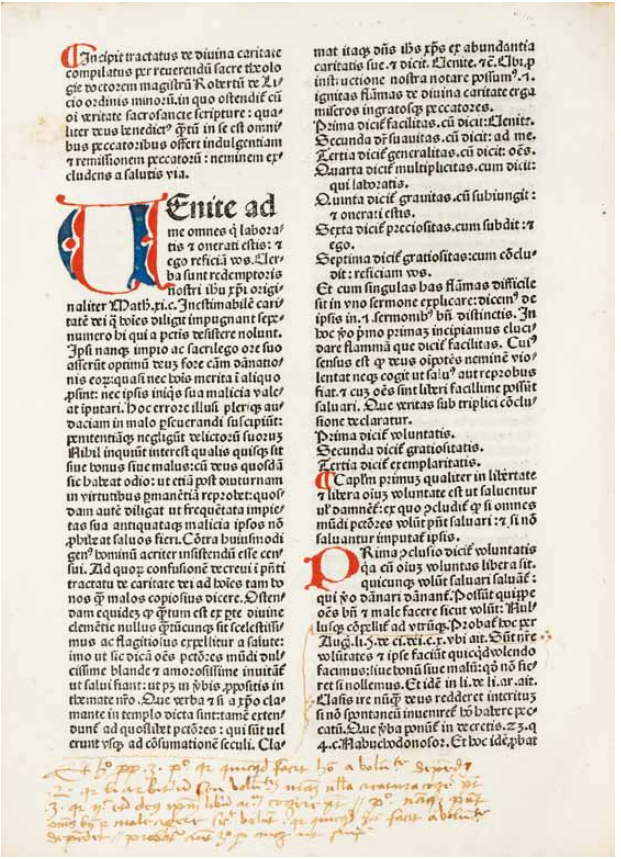 Incipit tractatus de diuina caritate
compilatus per reuerendū sacre theolo
gie doctorem magistrū Robertū de Li/
cio ordinis minorū. in quo ostendit̄ cū
oi veritate sacrosancte scripture : qua/
liter deus benedict⁹ q̄tū in se est omni
bus peccatoribus offert indulgentiam
⁊ remissionem peccatorū : neminem ex/
cludens a salutis via.
UEnite ad
me omnes q̇ labora/
tis ⁊ onerati estis : ⁊
ego reficiā vos. Uer/
ba sunt redemptoris
nostri ihu xp̄i origi/
naliter Math. xi. c. Inestimabilē cari/
tatē dei q̇ hoīes diligit impugnant sepe/
numero hi qui a petis desistere nolunt.
Ipsi nanqꝫ impio ac sacrilego ore suo
asserūt optimū deuꝫ fore cām dānatio/
nis eoꝝ: quasi nec hoīs merita ī aliquo
ꝓsint: nec ipsis iniq̇s sua malicia vale/
at īputari. Hoc errore illusi pleriqꝫ au/
daciam in malo ꝑseuerandi suscipiūt:
penitentiāqꝫ negligūt delictorū suoruꝫ
Nihil inquiūt interest qualis quisqꝫ sit
siue bonus siue malus: cū deus quosdā
sic habeat odio: ut etiā post diuturnam
in virtutibus ꝑmanētiā reprobet: quos/
dam autē diligat ut frequētata impie/
tas sua antiquataqꝫ malicia ipsos nō
ꝓhibeat saluos fieri. Cōtra huiusmodi
gen⁹ hominū acriter insistendū esse cen/
sui. Ad quoꝝ confusionē decreui ī pn̄ti
tractatu de caritate dei ad hoīes tam bo
nos q̄ malos copiosius dicere. Osten/
dam equidē ꝙ q̄tum est ex ꝑte diuine
clemētie nullus q̄tūcunqꝫ sit scelestissi/
mus ac flagitiosus expellitur a salute:
imo ut sic dicā oēs pctōres mūdi dul/
cissime blande ⁊ amorosissime inuitāt̄
ut salui fiant: ut pꝫ in v̄bis ꝓpositis in
themate nr̄o. Que verba ⁊ si a xp̄o cla
mante in templo dicta sint: tamē exten/
dunt̄ ad quoslibet pctōres : qui sūt uel
erunt vsqꝫ ad cōsumationē seculi. Cla/
mat itaqꝫ dn̄s ihs xp̄s ex abundantia
caritatis sue. ⁊ dicit. Uenite. ⁊c. Ubi. ꝓ
instructione nostra notare possum⁹. ⁊.
ignitas flāmas de diuina caritate erga
miseros ingratosqꝫ peccatores.
Prima dicit̄ facilitas. cū dicit: Uenite.
Secunda dr̄ suauitas. cū dicit: ad me.
Tertia dicit̄ generalitas. cū dicit: oēs.
Quarta dicit̄ multiplicitas. cum dicit:
qui laboratis.
Quinta dicit̄ grauitas. cū subiungit :
⁊ onerati estis.
Sexta dicit̄ preciositas. cum subdit : ⁊
ego.
Septima dicit̄ gratiositas: cum cōclu/
dit : reficiam vos.
Et cum singulas has flāmas difficile
sit in vno sermone explicare: dicem⁹ de
ipsis in. ⁊. sermonib⁹ bn̄ distinctis. In
hoc v̄o ꝓmo primaꝫ incipiamus eluci/
dare flammā que dicit̄ facilitas. Cui⁹
sensus est ꝙ deus oīpotēs neminē vio/
lentat neqꝫ cogit ut salu⁹ aut reprobus
fiat. ⁊ cuꝫ oēs sint liberi facillime possūt
saluari. Que veritas sub triplici cōclu/
sione declaratur.
Prima dicit̄ voluntatis.
Secunda dicit̄ gratiositatis.
Tertia dicit̄ exemplaritatis.
Caplm̄ primuꝫ qualiter in libertate
⁊ libera oīuꝫ voluntate est ut saluentur
ul̓ damnēt̄: ex quo ꝯcludit̄ ꝙ si omnes
mūdi pctōres volūt pn̄t saluari : ⁊ si nō
saluantur imputat̄ ipsis.
PRima ꝯclusio dicit̄ voluntatis
q̇a cū oīuꝫ voluntas libera sit.
quicunqꝫ volūt saluari saluāt̄ :
qui v̄o dānari dānant̄. Possūt quippe
oēs bn̄ ⁊ male facere sicut volūt: Nul/
lusqꝫ cōpellit̄ ad vtrūqꝫ. Probat̄ hoc per
Aug. li. 5. de ci. dei. c. x. vbi ait. Sūt nr̄e
volūtates ⁊ ipse faciūt quicq̇d volendo
facimus: siue bonū siue malū: qd̄ nō fie/
ret si nollemus. Et idē in li. de li. ar. ait.
Clasis ire nūq̄ deus redderet interituꝫ
si nō spontaneū inueniret̄ hō habere pec/
catū. Que v̄ba ponūt̄ in decretis. 23. q
4. c. Nabuchodonosor. Et hoc idē ꝓbat